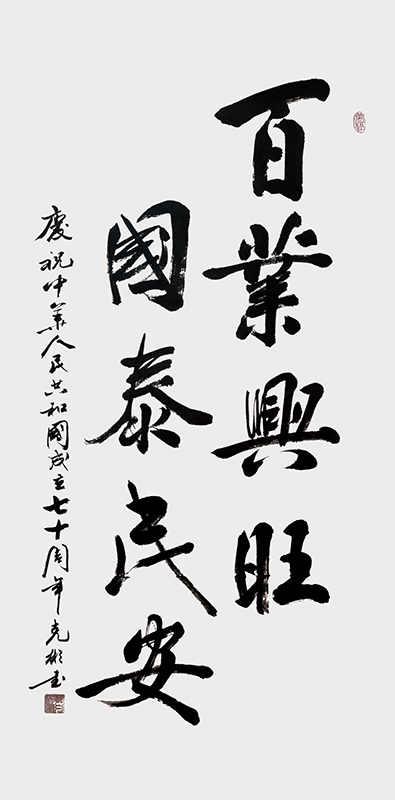 百業興旺
國泰民安
慶祝中華人民共和國成立七十周年 克彬書